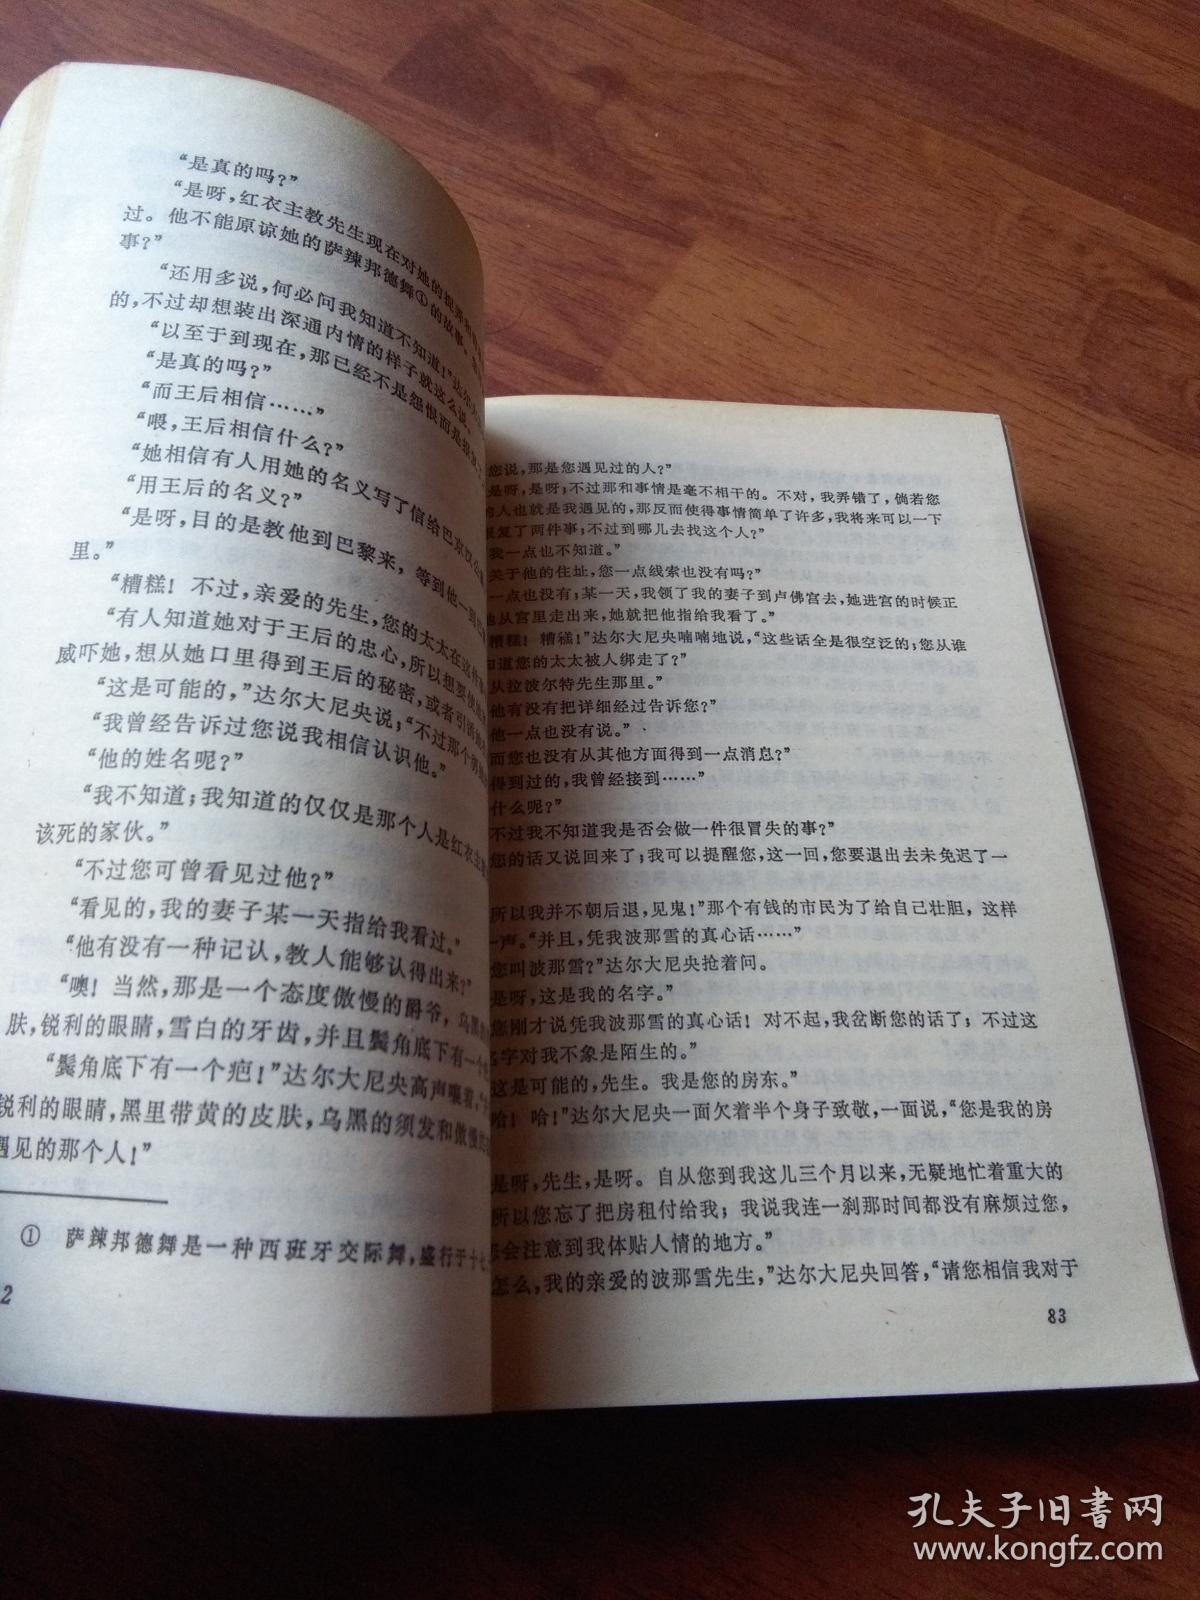 “是真的吗？”
“是呀，红衣主教先生现在对她的
过。他不能原谅她的萨辣邦德舞①的故事。
事？”
“还用多说，何必问我知道不知道！”达尔大
的，不过却想装出深通内情的样子就这么说。
“以至于到现在，那已经不是怨恨而是
“是真的吗？”
“而王后相信……”
“喂，王后相信什么？”
“她相信有人用她的名义写了信给巴京汉公
“用王后的名义？”
“是呀，目的是教他到巴黎来，等到他一到
里。”
“糟糕！不过，亲爱的先生，您的太太在这件
“有人知道她对于王后的忠心，所以想要使
威吓她，想从她口里得到王后的秘密，或者引诱
“这是可能的，”达尔大尼央说，“不过那个
“我曾经告诉过您说我相信认识他。”
“他的姓名呢？”
“我不知道；我知道的仅仅是那个人是红衣主
该死的家伙。”
“不过您可曾看见过他？”
“看见的，我的妻子某一天指给我看过。”
“他有没有一种记认，教人能够认得出来？”
“噢！当然，那是一个态度傲慢的爵爷，乌黑
肤，锐利的眼睛，雪白的牙齿，并且鬓角底下有一个
“鬓角底下有一个疤！”达尔大尼央高声嚷着，
锐利的眼睛，黑里带黄的皮肤，乌黑的须发和傲慢
遇见的那个人！”
① 萨辣邦德舞是一种西班牙交际舞，盛行于十七
2
您说，那是您遇见过的人？”
是呀，是呀；不过那和事情是毫不相干的。不对，我弄错了，倘若您
的人也就是我遇见的，那反而使得事情简单了许多，我将来可以一下
报复了两件事；不过到哪儿去找这个人？”
我一点也不知道。”
关于他的住址，您一点线索也没有吗？”
一点也没有；某一天，我领了我的妻子到卢佛宫去，她进宫的时候正
他从宫里走出来，她就把他指给我看了。”
糟糕！糟糕！”达尔大尼央喃喃地说，“这些话全是很空泛的；您从谁
知道您的太太被人绑走了？”
从拉波尔特先生那里。”
他有没有把详细经过告诉您？”
他一点也没有说。”
而您也没有从其他方面得到一点消息？”
得到过的，我曾经接到……”
什么呢？”
不过我不知道我是否会做一件很冒失的事？”
您的话又说回来了；我可以提醒您，这一回，您要退出去未免迟了一
所以我并不朝后退，见鬼！”那个有钱的市民为了给自己壮胆，这样
一声。“并且，凭我波那雪的真心话……”
您叫波那雪？”达尔大尼央抢着问。
是呀，这是我的名字。”
您刚才说凭我波那雪的真心话！对不起，我岔断您的话了；不过这
名字对我不象是陌生的。”
这是可能的，先生。我是您的房东。”
哈！哈！”达尔大尼央一面欠着半个身子致敬，一面说，“您是我的房
是呀，先生，是呀。自从您到我这儿三个月以来，无疑地忙着重大的
所以您忘了把房租付给我；我说我连一刹那时间都没有麻烦过您，
会注意到我体贴人情的地方。”
怎么，我的亲爱的波那雪先生，”达尔大尼央回答，“请您相信我对于
83
孔夫子旧书网
www.kongfz.com